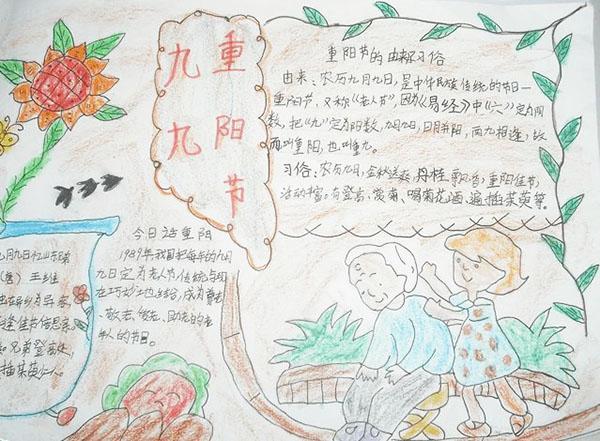 重阳节
九九
重阳节的由来习俗
由来：农历九月九日，是中华民族传统的节日一
重阳节，又称《老人节》，因为《易经》中《六》定为阴
数，把《九》定为阳数，九月九日，日月并阳，两九相连，故
而叫重阳，也叫重九。
习俗：农历九日，金秋送爽，丹桂飘香，重阳佳节，
活动丰富。有登高、赏菊、喝菊花酒、遍插茱萸等。
今日话重阳
1989年我国把每年的九月
九日定为老人节，传统与现
在巧妙地结合，成为尊老
、敬老、爱老、助老的老
年人的节日。
九月九日忆山东
王维
在异乡为异客
逢佳节倍思亲
知兄弟登高处
插茱萸少一人。